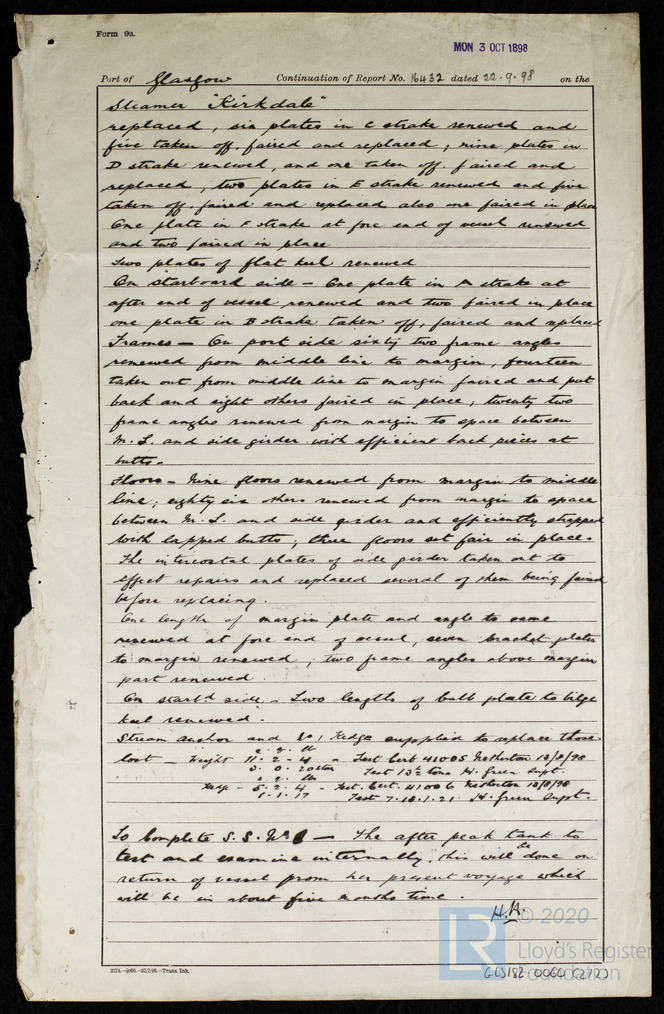 Form 9a.
MON 3 OCT 1898
Port of Glasgow Continuation of Report No. 16432 dated 22.9.98 on the
Steamer "Kirkdale"
replaced, six plates in C strake renewed and
five taken off, faired and replaced; nine plates in
D strake renewed, and one taken off, faired and
replaced, two plates in E strake renewed and five
taken off, faired and replaced also one faired in place
One plate in F strake at fore end of vessel renewed
and two faired in place
Two plates of flat keel renewed
On starboard side - One plate in A strake at
after end of vessel renewed and two faired in place
one plate in B strake taken off, faired and replaced
Frames - On port side sixty two frame angles
renewed from middle line to margin, fourteen
taken out from middle line to margin faired and put
back and eight others faired in place, twenty two
frame angles renewed from margin to space between
M.L. and side girder with efficient back pieces at
butts.
Floors - Nine floors renewed from margin to middle
line; eighty six others renewed from margin to space
between M.L. and side girder and efficiently strapped
with lapped butts; three floors set fair in place.
The intercostal plates of side girder taken out to
effect repairs and replaced several of them being faired
before replacing.
One length of margin plate and angle to same
renewed at fore end of vessel, seven bracket plates
to margin renewed, two frame angles above margin
part renewed.
On starbd side - Two lengths of bulb plate to bilge
keel renewed.
Stream anchor and No 1 Kedge supplied to replace those
c. q. lb
lost - Weight 11-2-4 - Test Cert 41005 Netherton 12/8/98
3.0.20 stock Test 13 2/ tons H. Green Supt.
c. q. lbs
Kedge - 5.2.4 - Test. Cert. 41006 Netherton 12/8/98
1.1.17 Test 7.18.1.21 H. Green Supt.
To Complete S.S. No 1 - The after peak tank to
test and examine internally, this will be done on
return of vessel from her present voyage which
will be in about five months time.
H.A.
© 2020
Lloyd's Register
Foundation
2274.-5000.-22/7/98.-Trans. Ink.
GLS182 0060 (2/2)